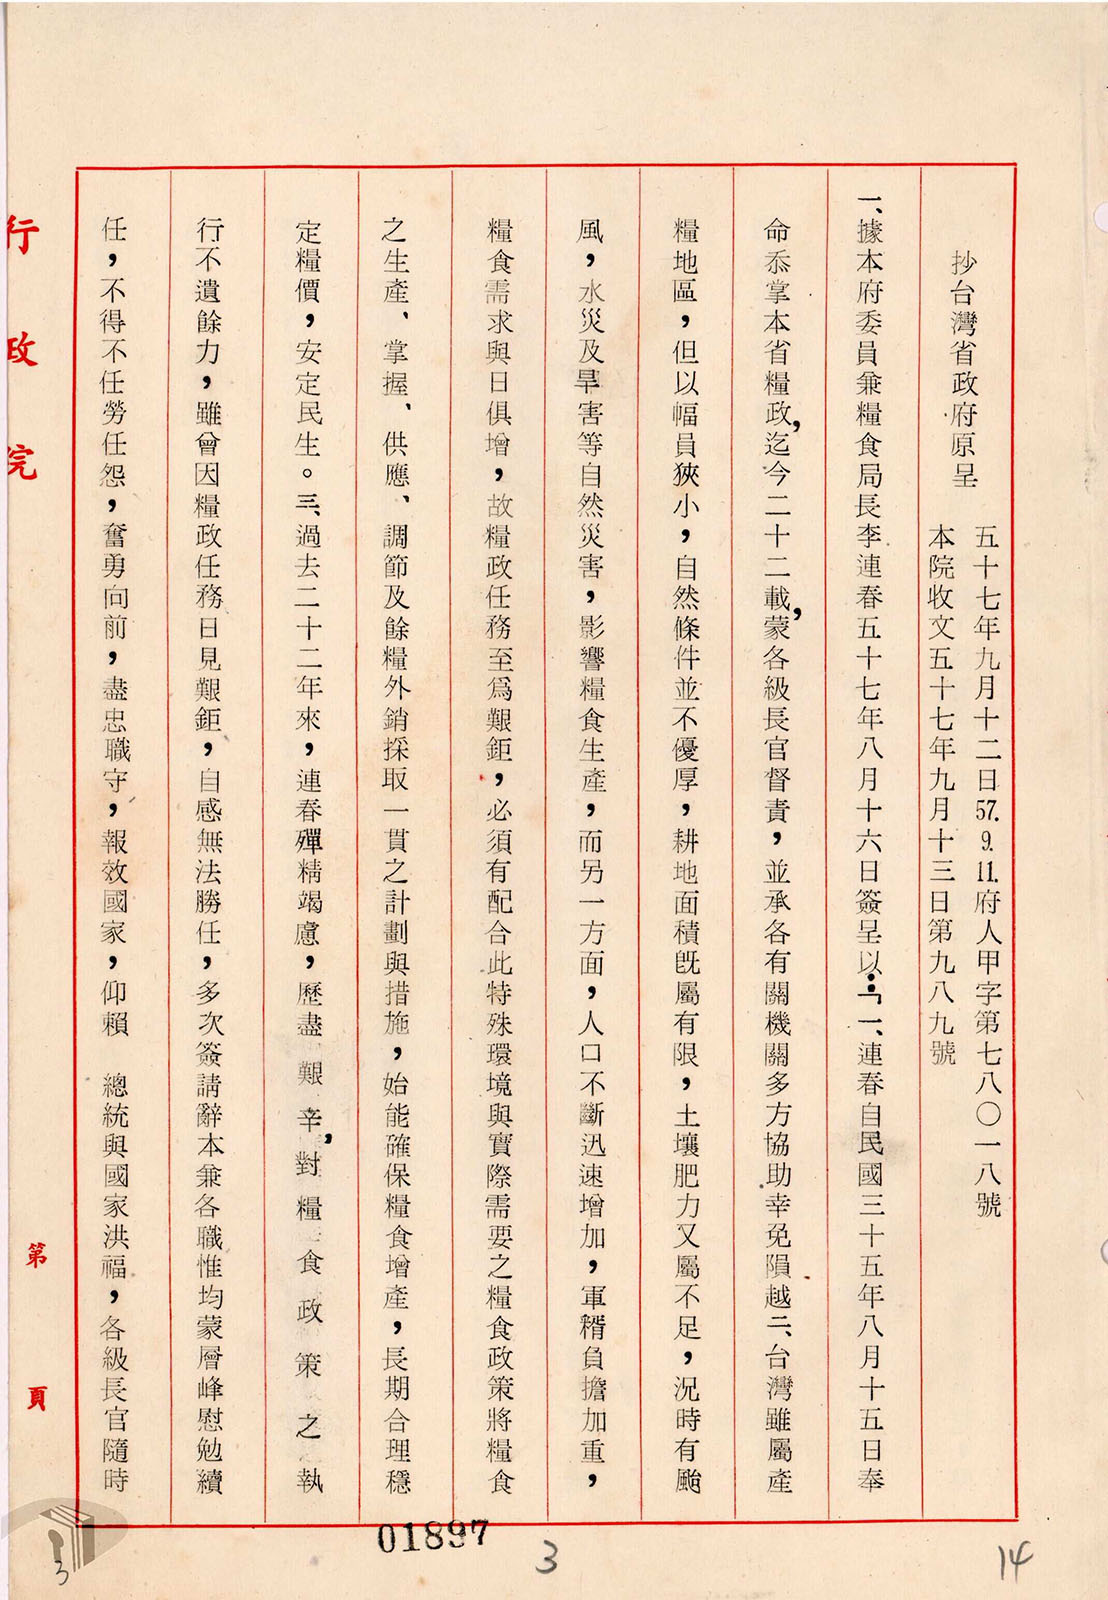 抄台灣省政府原呈
五十七年九月十二日57.9.11.府人甲字第七八〇一八號
本院收文五十七年九月十三日第九八九號
一、據本府委員兼糧食局長李連春五十七年八月十六日簽呈以：「一、連春自民國三十五年八月十五日奉
命忝掌本省糧政，迄今二十二載，蒙各級長官督責，並承各有關機關多方協助幸免隕越二、台灣雖屬產
糧地區，但以幅員狹小，自然條件並不優厚，耕地面積既屬有限，土壤肥力又屬不足，況時有颱
風，水災及旱害等自然災害，影響糧食生產，而另一方面，人口不斷迅速增加，軍糈負擔加重，
糧食需求與日俱增，故糧政任務至爲艱鉅，必須有配合此特殊環境與實際需要之糧食政策將糧食
之生產、掌握、供應、調節及餘糧外銷採取一貫之計劃與措施，始能確保糧食增產，長期合理穩
定糧價，安定民生。三、過去二十二年來，連春殫精竭慮，歷盡艱辛，對糧食政策之執
行不遺餘力，雖曾因糧政任務日見艱鉅，自感無法勝任，多次簽請辭本兼各職惟均蒙層峰慰勉續
任，不得不任勞任怨，奮勇向前，盡忠職守，報效國家，仰賴　總統與國家洪福，各級長官隨時
行政院
第　頁
01897
3
14
3